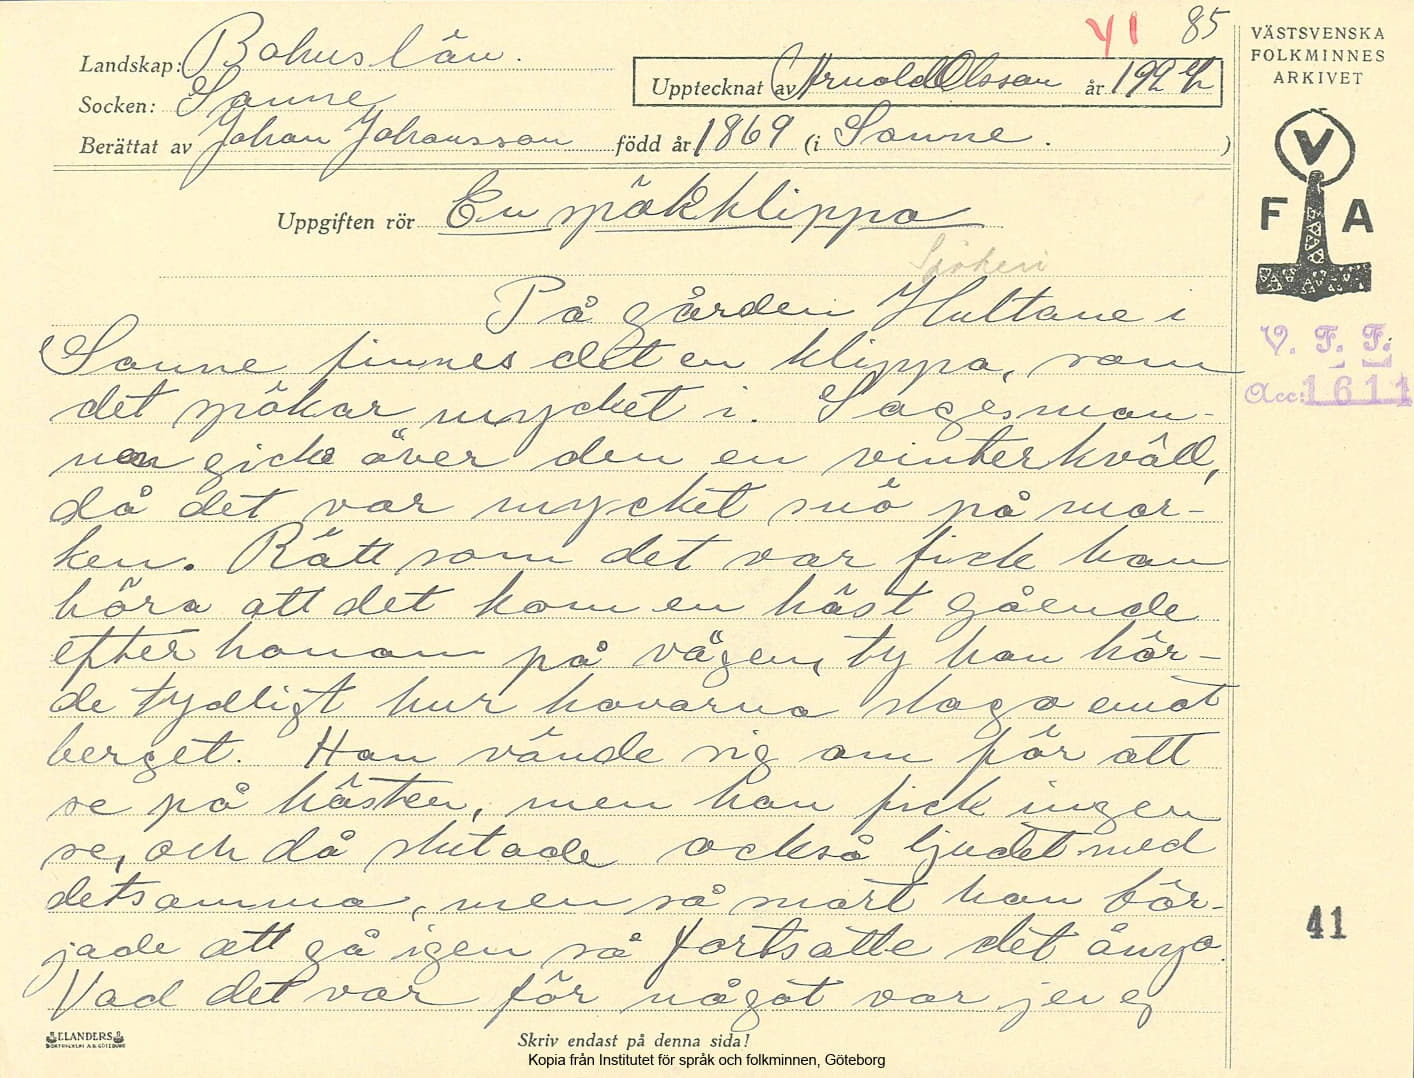 Y1 85
Landskap: Bohuslän.
Socken: Sanne
Berättat av Johan Johansson född år 1869 (i Sanne. )
Upptecknat av Arnold Olsson år 1924
VÄSTSVENSKA
FOLKMINNES
ARKIVET
V
F A
V. F. F.
Acc: 1611
Uppgiften rör En spökklippa
Spökeri
På gården Hultane i
Sanne finnes det en klippa, som
det spökar mycket i. Sagesman-
nen gick över den en vinterkväll,
då det var mycket snö på mar-
ken. Rätt som det var fick han
höra att det kom en häst gående
efter honom på vägen, ty han hör-
de tydligt hur hovarna slogo emot
berget. Han vände sig om för att
se på hästen, men han fick ingen
se, och då slutade också ljudet med
detsamma, men så snart han bör-
jade att gå igen så fortsatte det ånyo.
Vad det var för något var jen ej
41
ELANDERS
BOKTRYCKERI A.B. GÖTEBORG
Skriv endast på denna sida!
Kopia från Institutet för språk och folkminnen, Göteborg